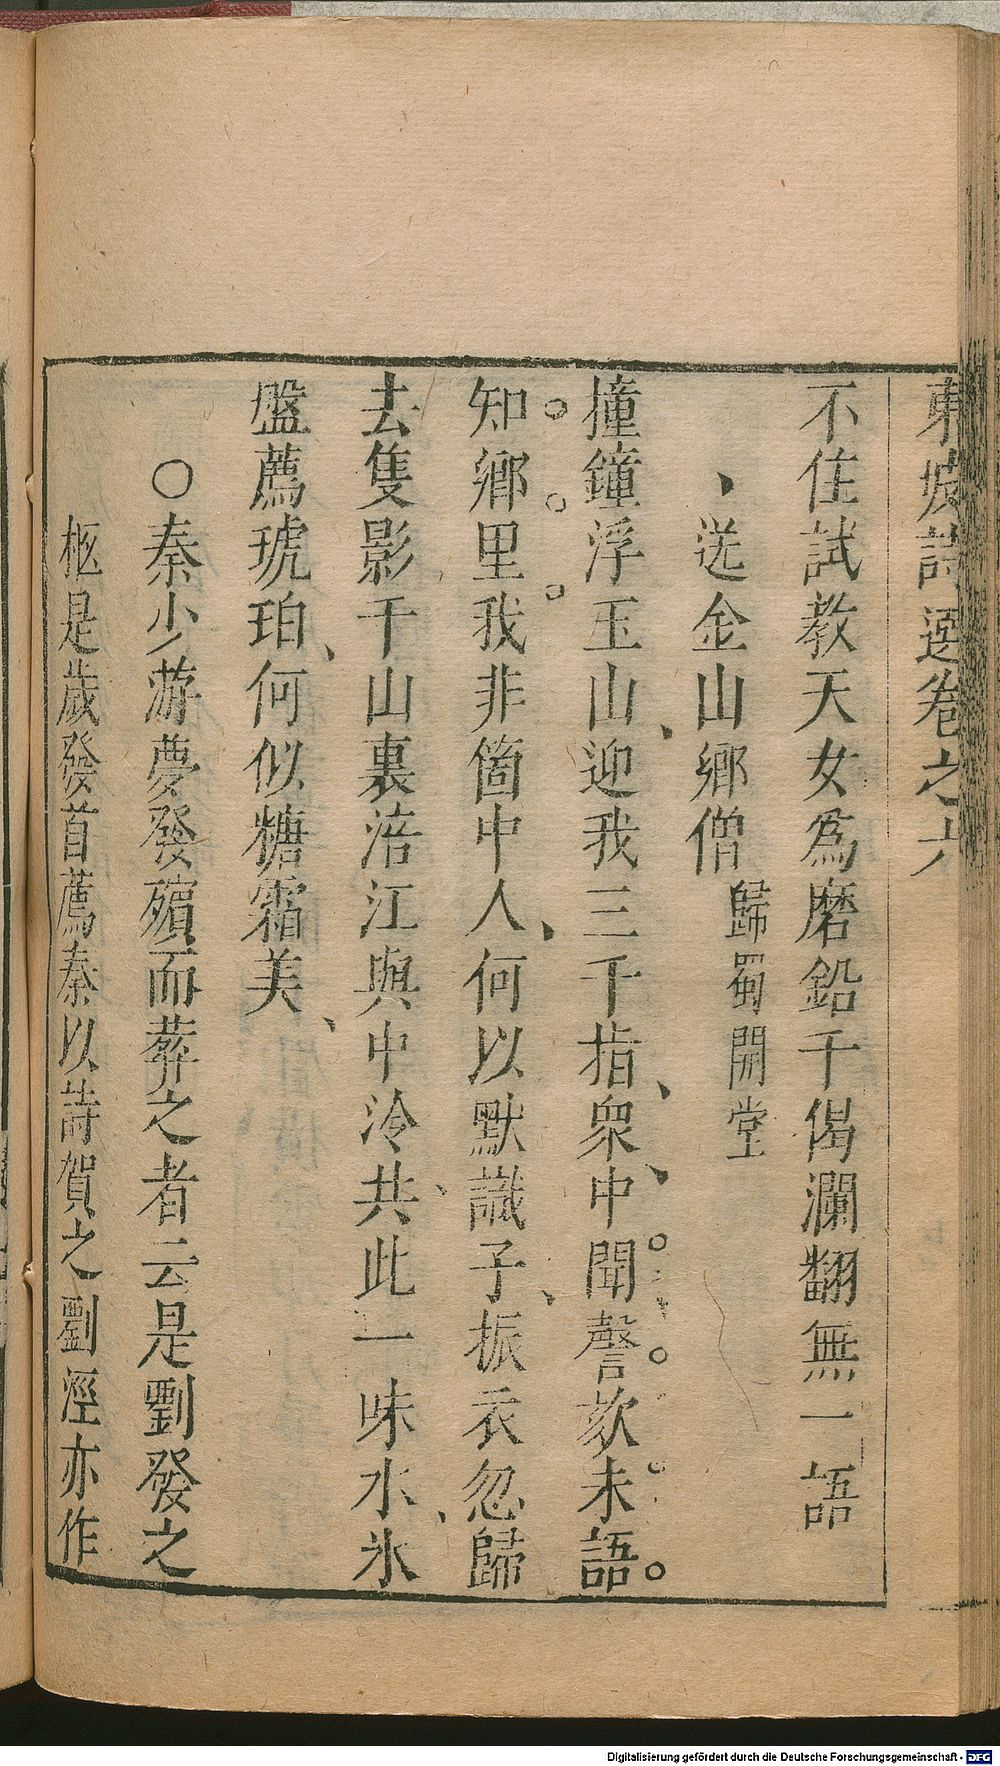 東坡詩選卷之六
不住試教天女爲磨鉛千偈瀾翻無一語
、送金山鄉僧歸蜀開堂
撞鐘浮玉山迎我三千指衆中聞謦欬未語
知鄉里我非箇中人何以默識子振衣忽歸
去隻影千山裏涪江與中泠共此一味水氷
盤薦琥珀何似糖霜美
○秦少游夢發殯而葬之者云是劉發之
柩是歲發首薦秦以詩賀之劉涇亦作
Digitalisierung gefördert durch die Deutsche Forschungsgemeinschaft - DFG